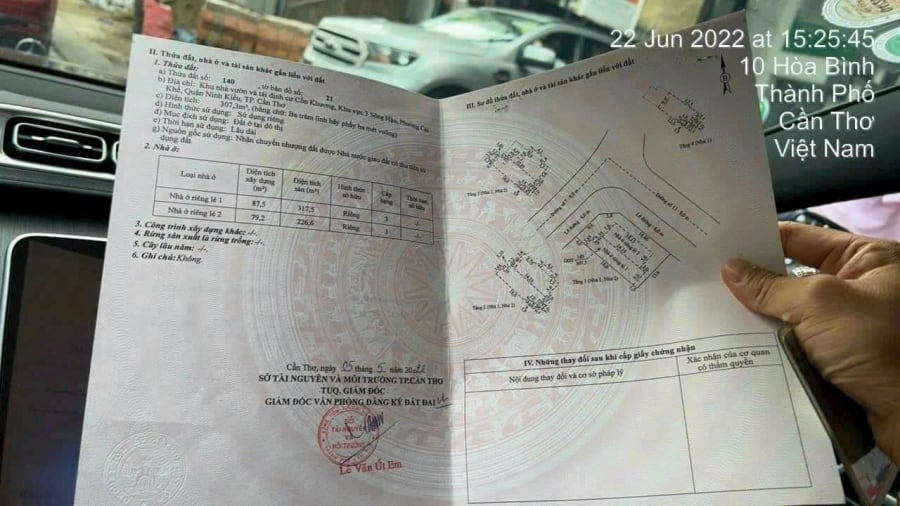 22 Jun 2022 at 15:25:45
10 Hòa Bình
Thành Phố
Cần Thơ
Việt Nam
II. Thửa đất, nhà ở và tài sản khác gắn liền với đất
1. Thửa đất:
a) Thửa đất số: 140 , tờ bản đồ số: 21
b) Địa chỉ: Khu nhà vườn và tái định cư Cồn Khương, Khu vực 3 Sông Hậu, Phường Cái
Khế, Quận Ninh Kiều, TP. Cần Thơ
c) Diện tích: 307,3m², (bằng chữ: Ba trăm linh bảy phẩy ba mét vuông)
d) Hình thức sử dụng: Sử dụng riêng
đ) Mục đích sử dụng: Đất ở tại đô thị
e) Thời hạn sử dụng: Lâu dài
g) Nguồn gốc sử dụng: Nhận chuyển nhượng đất được Nhà nước giao đất có thu tiền sử
dụng đất
2. Nhà ở:
Loại nhà ở Diện tích xây dựng (m²) Diện tích sàn (m²) Hình thức sở hữu Cấp hạng Thời hạn sở hữu
Nhà ở riêng lẻ 1 87,5 317,5 Riêng 3 -/-
Nhà ở riêng lẻ 2 79,2 226,6 Riêng 3 -/-
3. Công trình xây dựng khác: -/-
4. Rừng sản xuất là rừng trồng: -/-
5. Cây lâu năm: -/-
6. Ghi chú: Không.
Cần Thơ, ngày 05 tháng 5 năm 2022
SỞ TÀI NGUYÊN VÀ MÔI TRƯỜNG TP.CẦN THƠ
TUQ. GIÁM ĐỐC
GIÁM ĐỐC VĂN PHÒNG ĐĂNG KÝ ĐẤT ĐAI
SỞ
TÀI NGUYÊN
VÀ
MÔI TRƯỜNG
Lê Văn Út Em
III. Sơ đồ thửa đất, nhà ở và tài sản khác gắn liền với đất
B
Tầng 4 (Nhà 1)
Tầng 2 (Nhà 1, Nhà 2)
Tầng 3 (Nhà 1, Nhà 2)
Tầng 1 (Nhà 1, Nhà 2)
IV. Những thay đổi sau khi cấp giấy chứng nhận
Nội dung thay đổi và cơ sở pháp lý
Xác nhận của cơ quan
có thẩm quyền